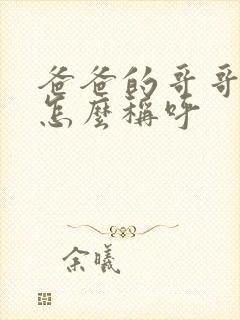 爸爸的哥哥
怎麼稱呼
余曦